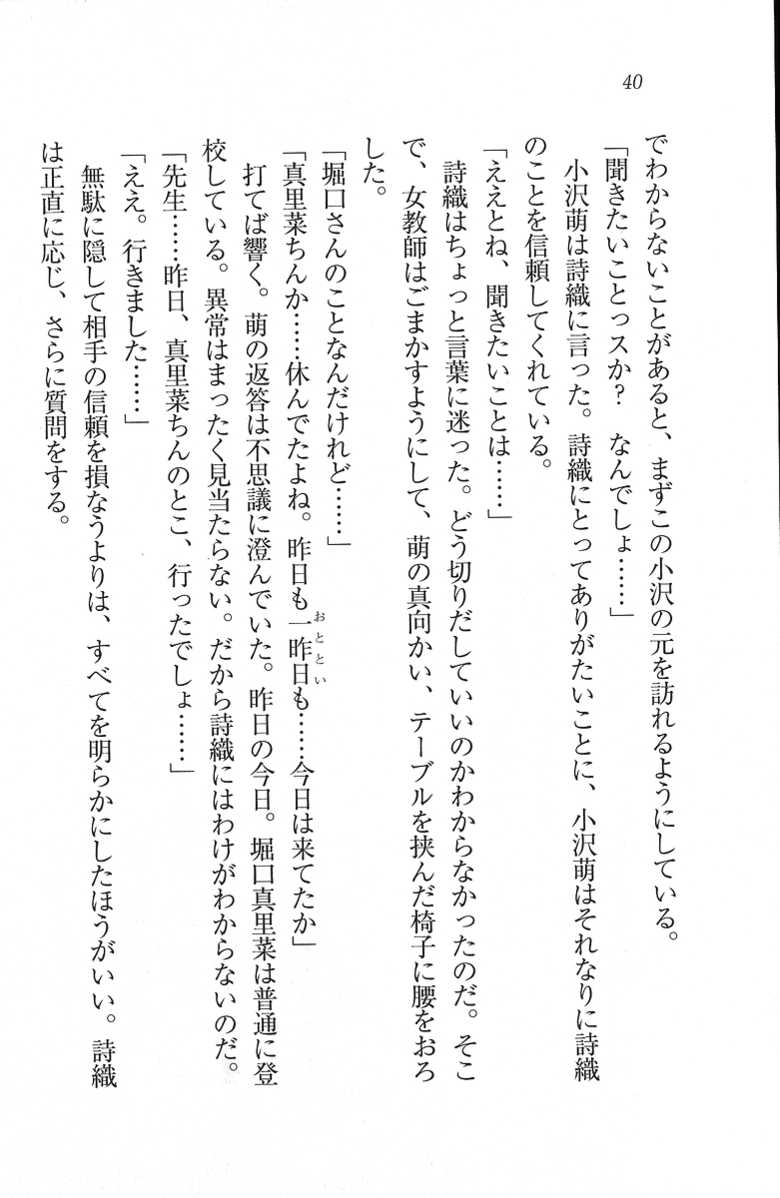 40
でわからないことがあると、まずこの小沢の元を訪れるようにしている。
「聞きたいことっスか？　なんでしょ……」
　小沢萌は詩織に言った。詩織にとってありがたいことに、小沢萌はそれなりに詩織
のことを信頼してくれている。
「ええとね、聞きたいことは……」
　詩織はちょっと言葉に迷った。どう切りだしていいのかわからなかったのだ。そこ
で、女教師はごまかすようにして、萌の真向かい、テーブルを挟んだ椅子に腰をおろ
した。
「堀口さんのことなんだけれど……」
「真里菜ちんか……休んでたよね。昨日も一昨日も……今日は来てたか」
おととい
　打てば響く。萌の返答は不思議に澄んでいた。昨日の今日。堀口真里菜は普通に登
校している。異常はまったく見当たらない。だから詩織にはわけがわからないのだ。
「先生……昨日、真里菜ちんのとこ、行ったでしょ……」
「ええ。行きました……」
　無駄に隠して相手の信頼を損なうよりは、すべてを明らかにしたほうがいい。詩織
は正直に応じ、さらに質問をする。